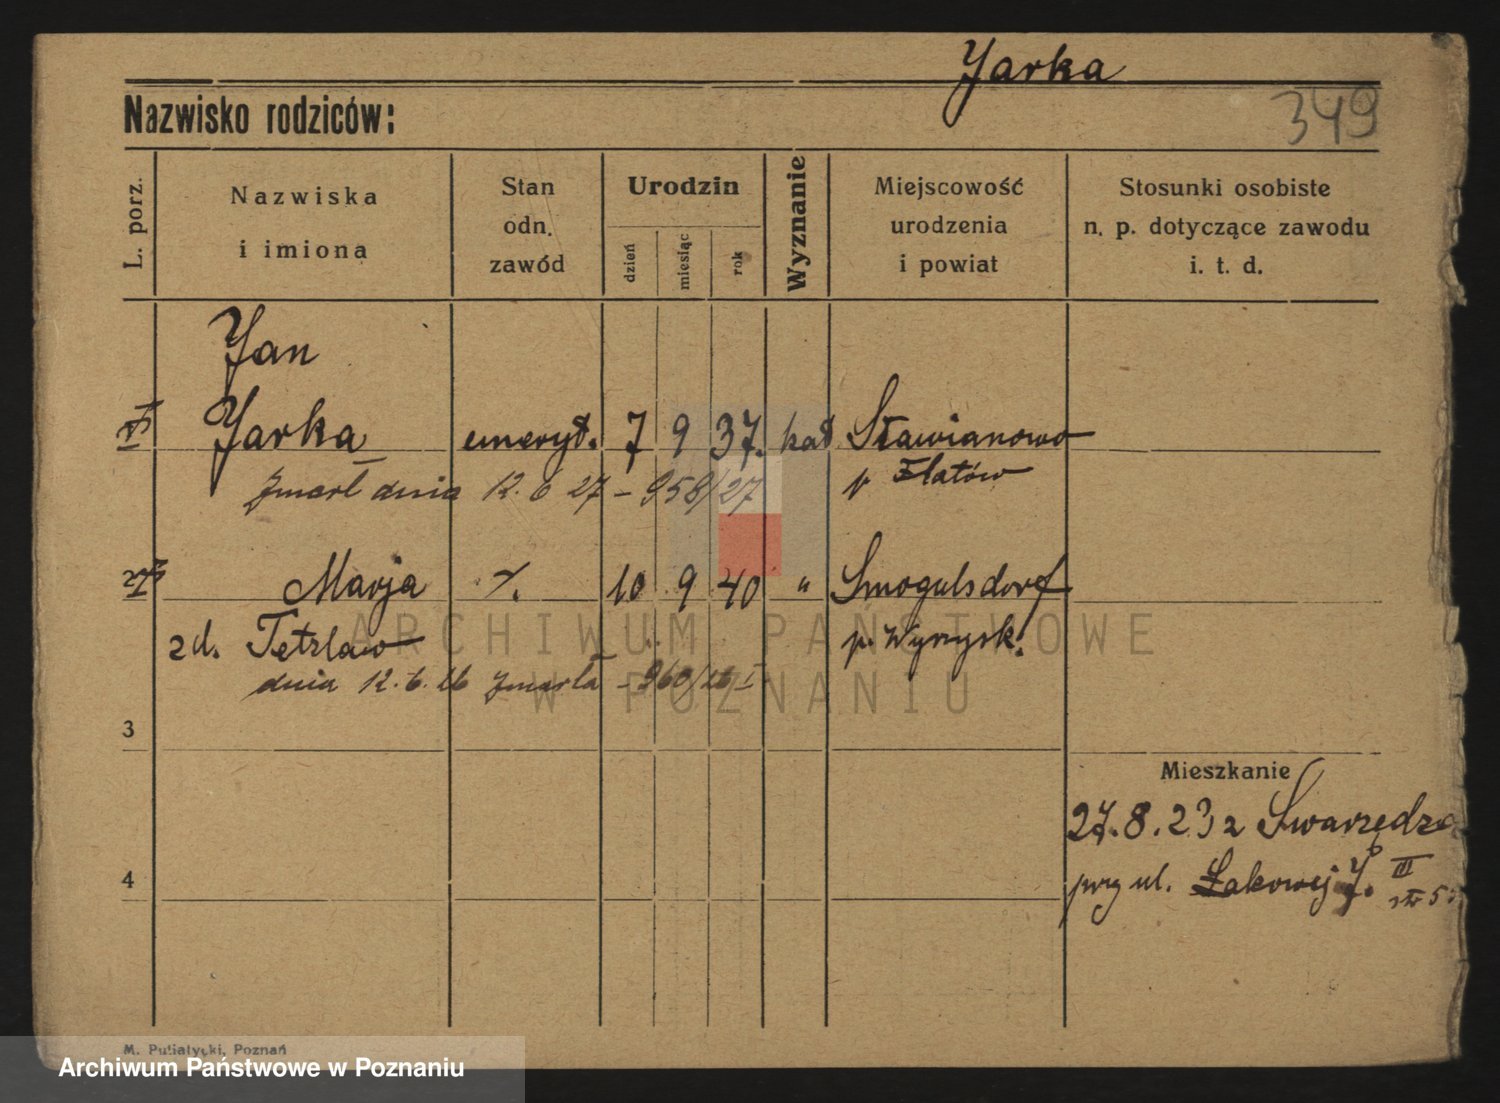 Yarka
Nazwisko rodziców:
349
L. porz.
Nazwiska
i imiona
Stan
odn.
zawód
Urodzin
dzień
miesiąc
rok
Wyznanie
Miejscowość
urodzenia
i powiat
Stosunki osobiste
n. p. dotyczące zawodu
i. t. d.
Yan
Yarka emeryt. 7 9 37. kat Sławianowo
zmarł dnia 12. 6 27 - 958/27 p Złatów
2 Marja 10 9 40 " Smogulsdorf
zd. Tetzlaw p. Wyrzysk.
dnia 12. 6. 26 zmarła - 960/26 I
3
Mieszkanie
27. 8. 23 z Swarzędza
4
przy ul. Łakowej 7. III
str 5
M. Pułiatycki, Poznań
ARCHIWUM PAŃSTWOWE
W POZNANIU
Archiwum Państwowe w Poznaniu